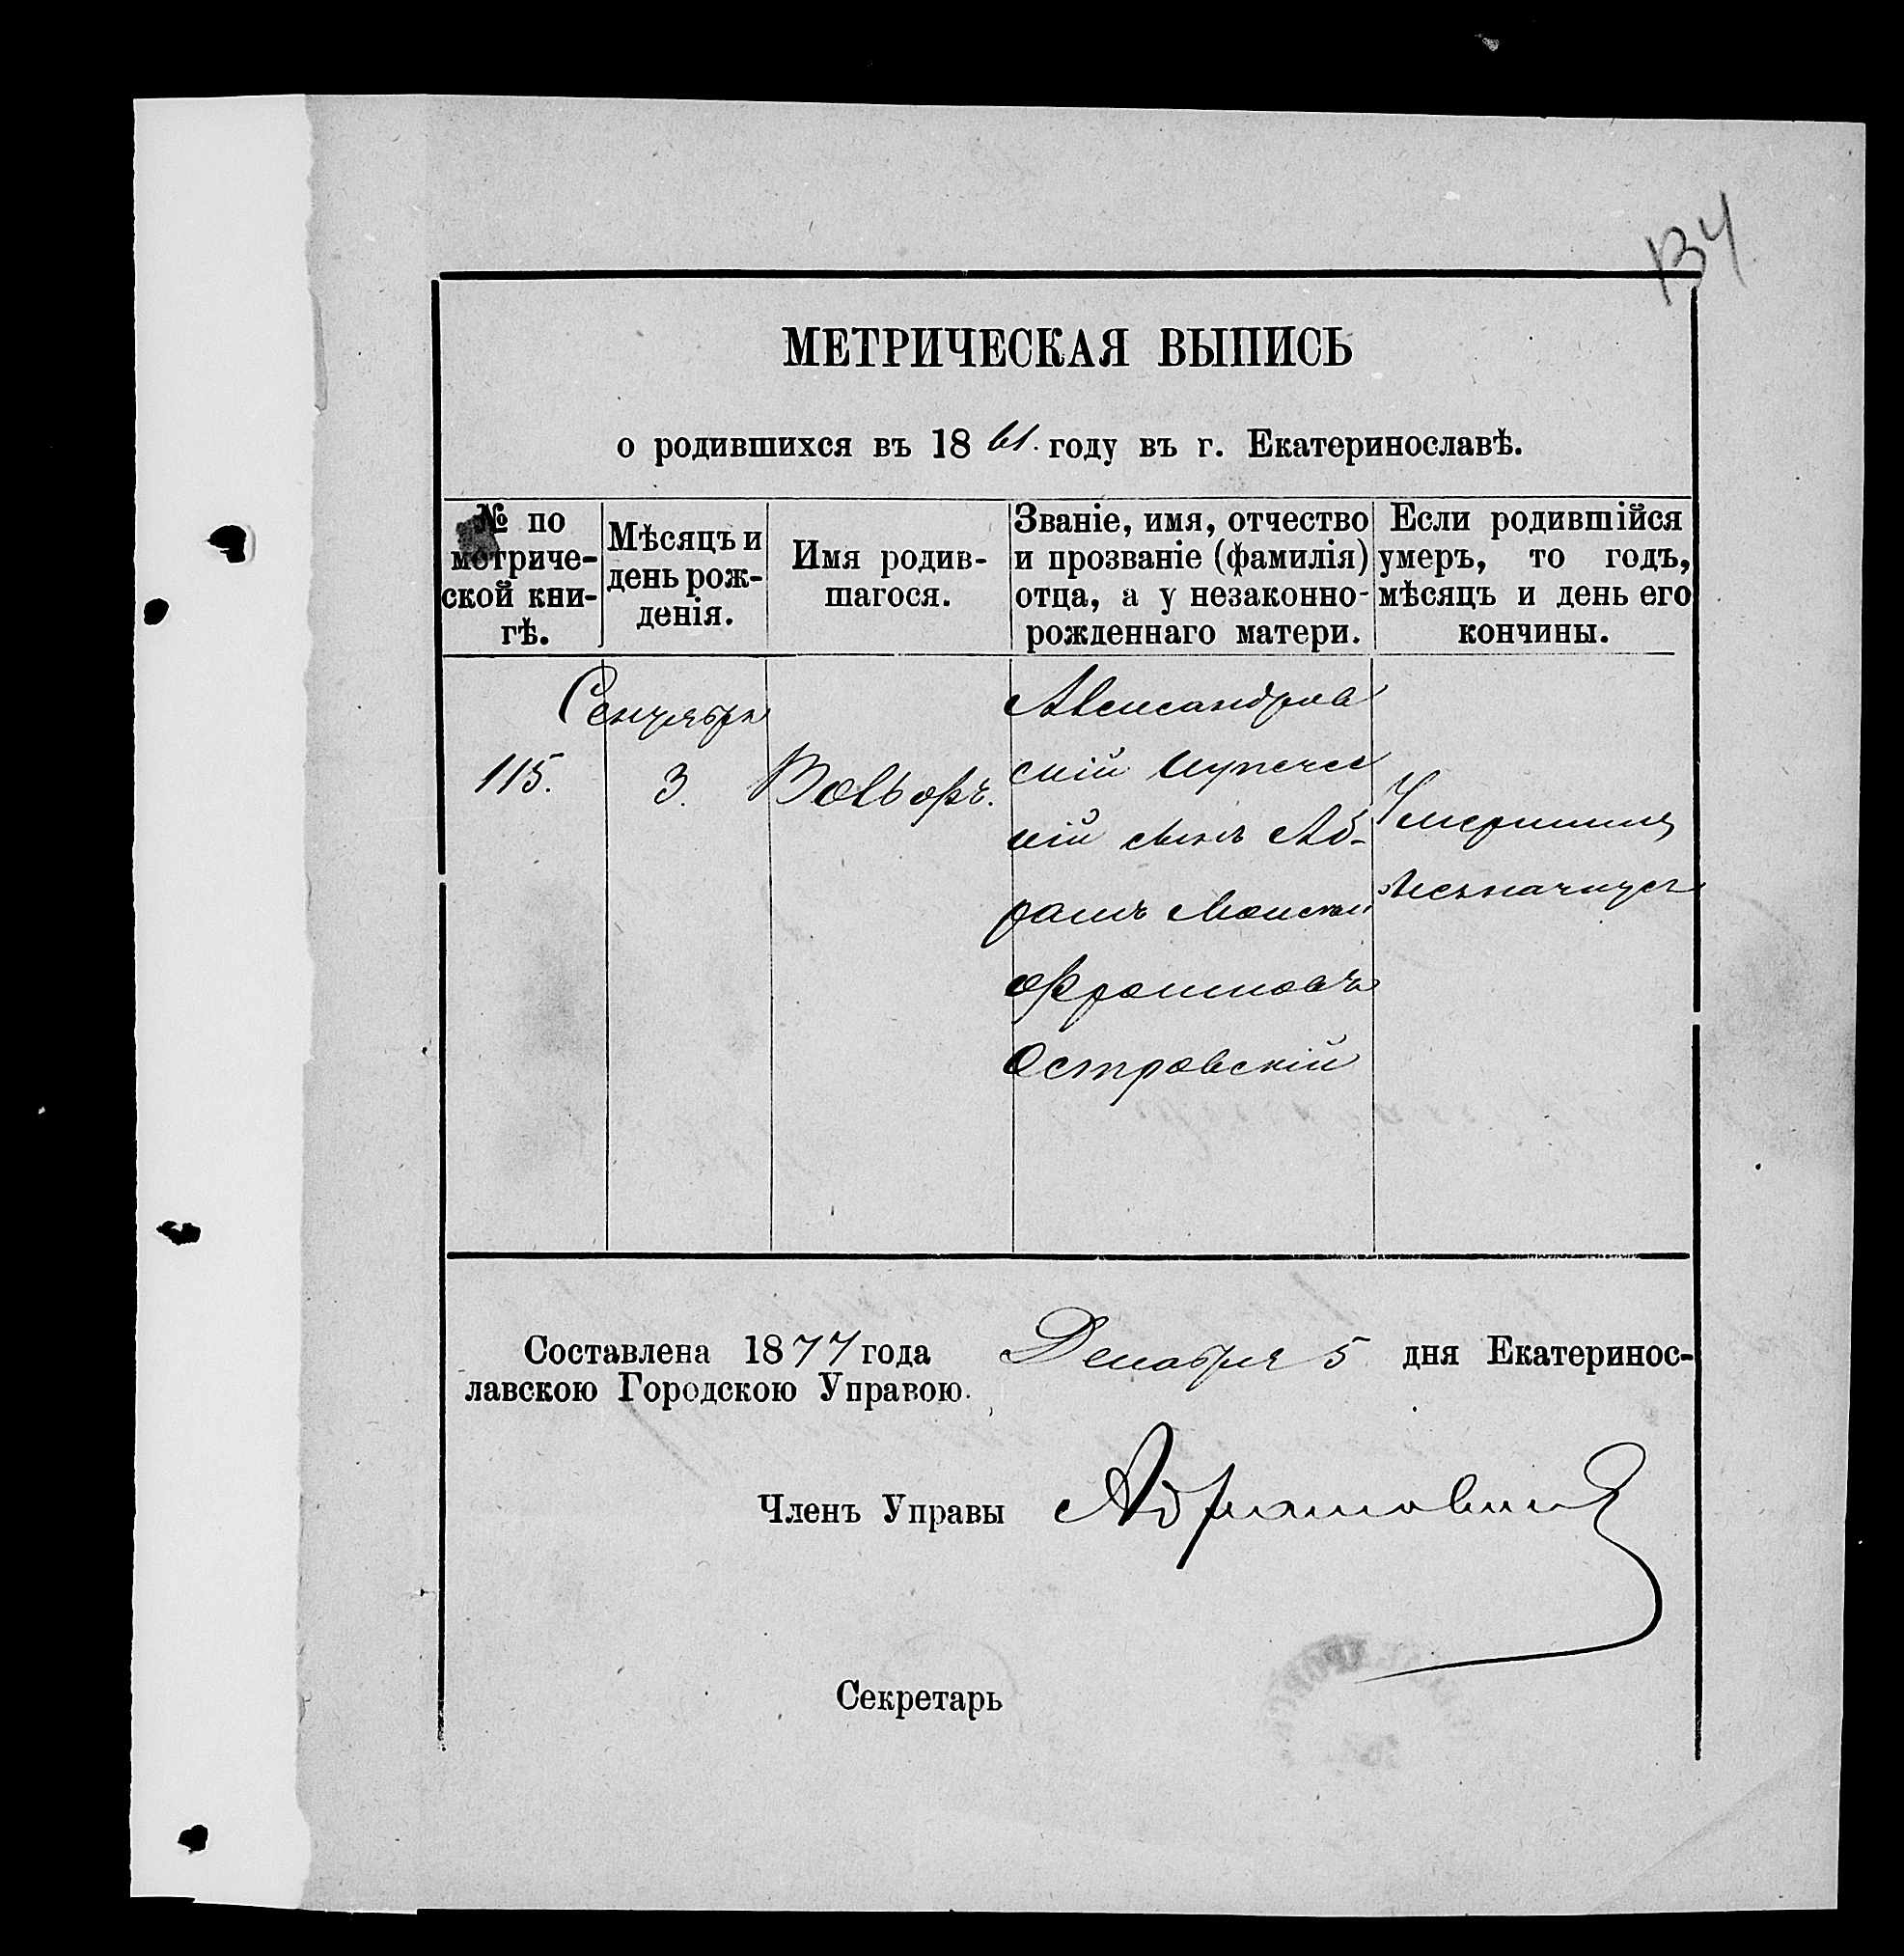 134
МЕТРИЧЕСКАЯ ВЫПИСЬ
о родившихся въ 1861. году въ г. Екатеринославѣ.
№ по метриче-
ской кни-
гѣ.
Мѣсяцъ и
день рож-
денія.
Имя родив-
шагося.
Званіе, имя, отчество
и прозваніе (фамилія)
отца, а у незаконно-
рожденнаго матери.
Если родившійся
умеръ, то годъ,
мѣсяцъ и день его
кончины.
115.
Сентября
3.
Вольфъ.
Александров
скій купечес
кій сынъ Аб-
рамъ
Островскій
Умершимъ
незначится
Составлена 1877 года Декабря 5 дня Екатеринос-
лавскою Городскою Управою.
Членъ Управы
Секретарь